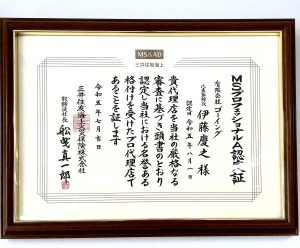 MS&AD
三井住友海上
MSプロフェッショナルA認定証
有限会社 ゴーイング
代表取締役
伊藤慶之 様
認定日 令和五年八月一日
貴代理店を当社の厳格なる
審査に基づき頭書のとおり
認定し当社における名誉ある
格付けを受けたプロ代理店で
あることを証します
令和五年七月吉日
三井住友海上火災保険株式会社
取締役社長 舩曵真一郎